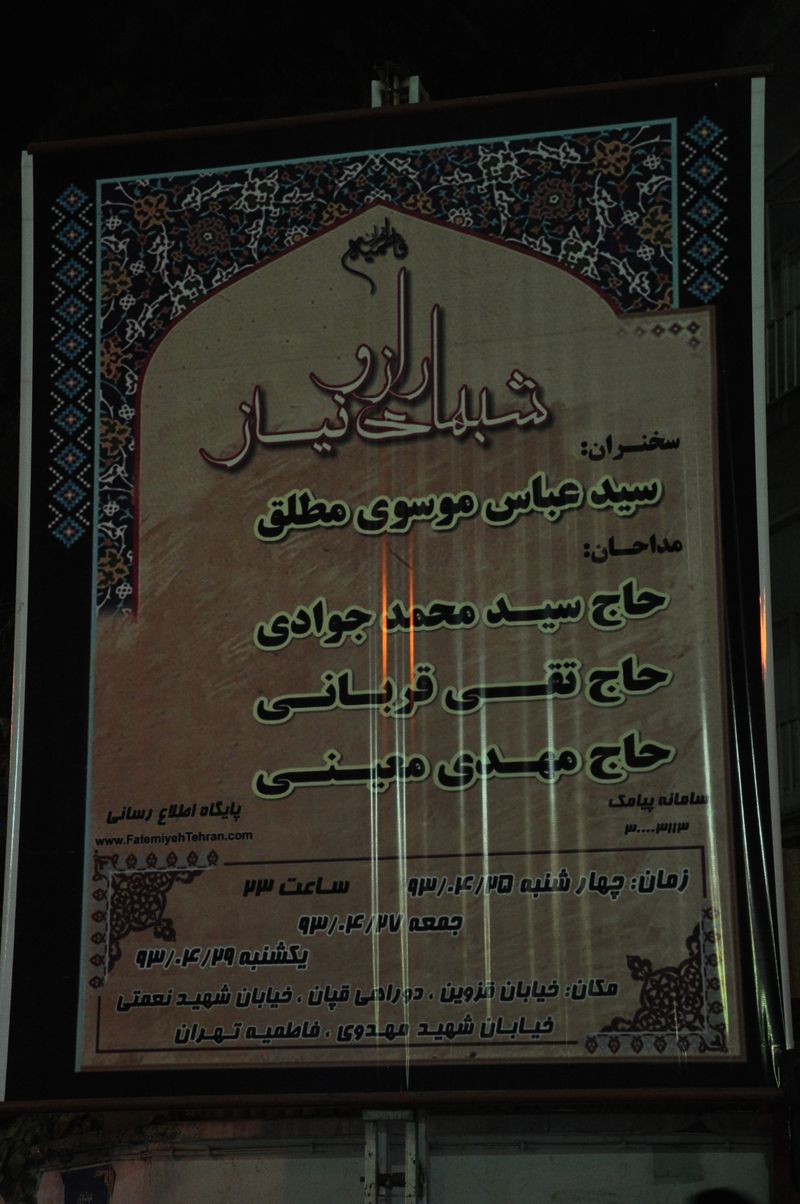 فاطمیه تهران
شبهای راز و نیاز
سخنران:
سید عباس موسوی مطلق
مداحان:
حاج سید محمد جوادی
حاج تقی قربانی
حاج مهدی معینی
سامانه پیامک
۳۰۰۰۰۳۱۱۳
پایگاه اطلاع رسانی
www.FatemiyehTehran.com
زمان: چهار شنبه ۹۳/۰۴/۲۵ ساعت ۲۳
جمعه ۹۳/۰۴/۲۷
یکشنبه ۹۳/۰۴/۲۹
مکان: خیابان قزوین ، دوراهی قپان ، خیابان شهید نعمتی
خیابان شهید مهدوی ، فاطمیه تهران